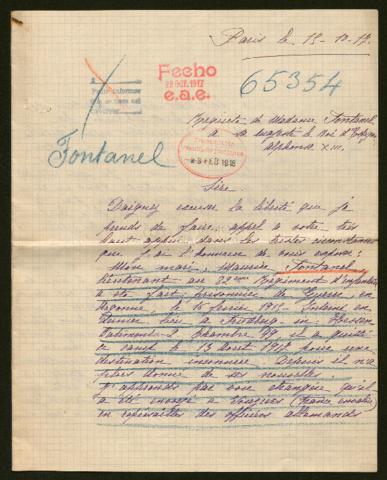 Paris le 15-10-17.
Fecho
22 OCT. 1917
e.a.e.
65354
Requête de Madame Fontanel
à sa majesté le Roi d'Espagne
Alphonse XIII.
FEB 1918
Fontanel
Sire,
Daignez excuser la liberté que je
prends de faire appel à votre très
haut appui dans les tristes circonstances
que j'ai l'honneur de vous exposer:
Mon mari, Maurice Fontanel,
lieutenant au Régiment d'infanterie
a été fait prisonnier de Guerre, en
Argonne, février 1915. Interné en
dernier lieu à en Hessen
2 Chambre 99 il a quitté
ce camp le 13 Août 1917 pour une
destination inconnue. Depuis il n'a
plus donné de ses nouvelles.
J'apprends par voie étrangère qu'il
a été envoyé à Vouziers (France envahie)
en représailles des officiers allemands